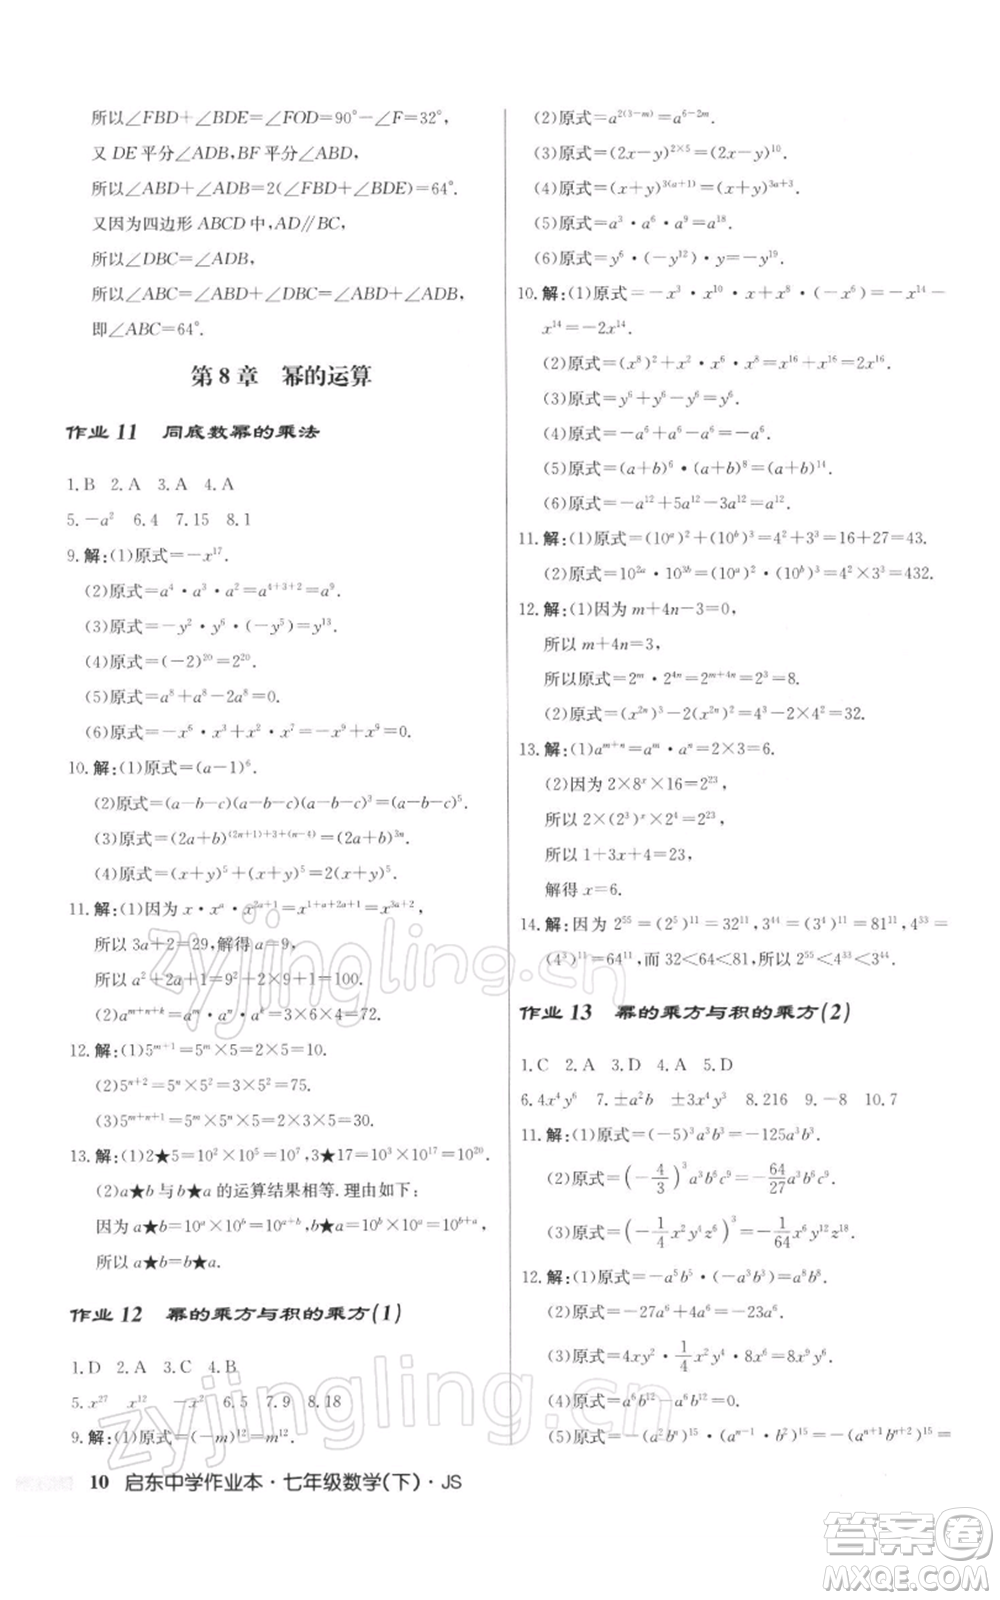 所以∠FBD+∠BDE=∠FOD=90°-∠F=32°,
又 DE 平分∠ADB,BF 平分∠ABD,
所以∠ABD+∠ADB=2(∠FBD+∠BDE)=64°.
又因为四边形 ABCD 中,AD∥BC,
所以∠DBC=∠ADB,
所以∠ABC=∠ABD+∠DBC=∠ABD+∠ADB,
即∠ABC=64°.
第 8 章 幂的运算
作业 11 同底数幂的乘法
1.B 2.A 3.A 4.A
5.-a² 6.4 7.15 8.1
9.解:(1)原式=-x¹⁷.
(2)原式=a⁴·a³·a²=a⁴⁺³⁺²=a⁹.
(3)原式=-y⁵·y⁶·(-y²)=y¹³.
(4)原式=(-2)²⁰=2²⁰.
(5)原式=a⁸+a⁸-2a⁸=0.
(6)原式=-x⁶·x³+x²·x⁷=-x⁹+x⁹=0.
10.解:(1)原式=(a-1)⁶.
(2)原式=(a-b-c)(a-b-c)(a-b-c)³=(a-b-c)⁵.
(3)原式=(2a+b)^{(2n+1)+3+(n-4)}=(2a+b)³ⁿ.
(4)原式=(x+y)⁵+(x+y)⁵=2(x+y)⁵.
11.解:(1)因为 x·x^{a}·x^{2a+1}=x^{1+a+2a+1}=x^{3a+2},
所以 3a+2=29,解得 a=9,
所以 a²+2a+1=9²+2×9+1=100.
(2)a^{m+n+k}=a^{m}·a^{n}·a^{k}=3×6×4=72.
12.解:(1)5^{m+1}=5^{m}×5=2×5=10.
(2)5^{n+2}=5^{n}×5²=3×5²=75.
(3)5^{m+n+1}=5^{m}×5^{n}×5=2×3×5=30.
13.解:(1)2★5=10²×10⁵=10⁷,3★17=10³×10¹⁷=10²⁰.
(2)a★b 与 b★a 的运算结果相等.理由如下:
因为 a★b=10^{a}×10^{b}=10^{a+b},b★a=10^{b}×10^{a}=10^{b+a},
所以 a★b=b★a.
作业 12 幂的乘方与积的乘方(1)
1.D 2.A 3.C 4.B
5.x²⁷ x¹² -x² 6.5 7.9 8.18
9.解:(1)原式=m³ˣ⁴=m¹².
10 启东中学作业本·七年级数学(下)·JS
(2)原式=a^{2(3-m)}=a^{6-2m}.
(3)原式=(2x-y)^{2×5}=(2x-y)¹⁰.
(4)原式=(x+y)^{3(a+1)}=(x+y)^{3a+3}.
(5)原式=a³·a⁶·a⁹=a¹⁸.
(6)原式=y⁶·(-y¹²)·y=-y¹⁹.
10.解:(1)原式=-x³·x¹⁰·x+x⁸·(-x⁶)=-x¹⁴-
x¹⁴=-2x¹⁴.
(2)原式=(x⁸)²+x⁴·x⁴·x⁸=x¹⁶+x¹⁶=2x¹⁶.
(3)原式=y⁶+y⁶-y⁶=y⁶.
(4)原式=-a⁶·a⁶=-a¹².
(5)原式=(a+b)⁶·(a+b)⁸=(a+b)¹⁴.
(6)原式=-a¹²+5a¹²-3a¹²=a¹².
11.解:(1)原式=(10^{a})²+(10^{b})³=4²+3³=16+27=43.
(2)原式=10^{2a}·10^{3b}=(10^{a})²·(10^{b})³=4²×3³=432.
12.解:(1)因为 m+4n-3=0,
所以 m+4n=3,
所以原式=2^{m}·2^{4n}=2^{m+4n}=2³=8.
(2)原式=(x^{2n})³-2(x^{2n})²=4³-2×4²=32.
13.解:(1)a^{m+n}=a^{m}·a^{n}=2×3=6.
(2)因为 2×8^{x}×16=2²³,
所以 2×(2³)^{x}×2⁴=2²³,
所以 1+3x+4=23,
解得 x=6.
14.解:因为 2⁵⁵=(2⁵)¹¹=32¹¹,3⁴⁴=(3⁴)¹¹=81¹¹,4³³=
(4³)¹¹=64¹¹,而 32<64<81,所以 2⁵⁵<4³³<3⁴⁴.
作业 13 幂的乘方与积的乘方(2)
1.C 2.A 3.D 4.A 5.D
6.4x⁴y⁶ 7.±a²b ±3x⁴y³ 8.216 9.-8 10.7
11.解:(1)原式=(-5)³a³b³=-125a³b³.
(2)原式=(-4/3)³a³b⁶c⁹=-64/27a³b⁶c⁹.
(3)原式=(-1/4x²y⁴z⁶)³=-1/64x⁶y¹²z¹⁸.
12.解:(1)原式=-a⁵b⁵·(-a³b⁴)=a⁸b⁹.
(2)原式=-27a⁶+4a⁶=-23a⁶.
(3)原式=4xy²·1/4x²y⁴=x³y⁶.
(4)原式=a⁶b¹²-a⁶b¹²=0.
zyjingling.cn
zyjingling.cn
答案圈
MXQE.COM